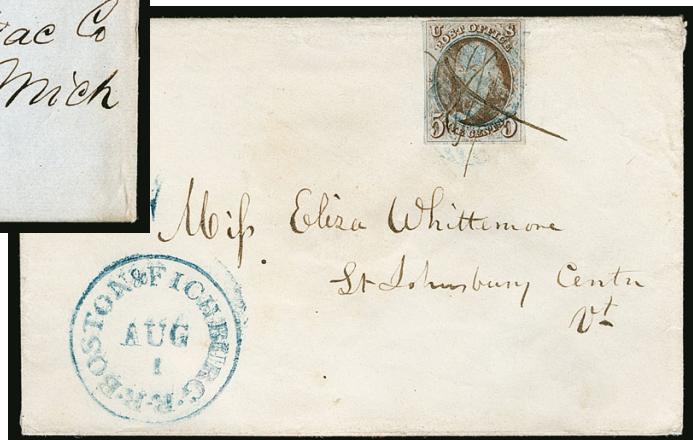 ac Co
Mich
U S
POST OFFICE
5 FIVE CENTS 5
Miſs Eliza Whittemore
St Johnsbury Centre
Vt
BOSTON & FICHBURG R.R.
AUG
1